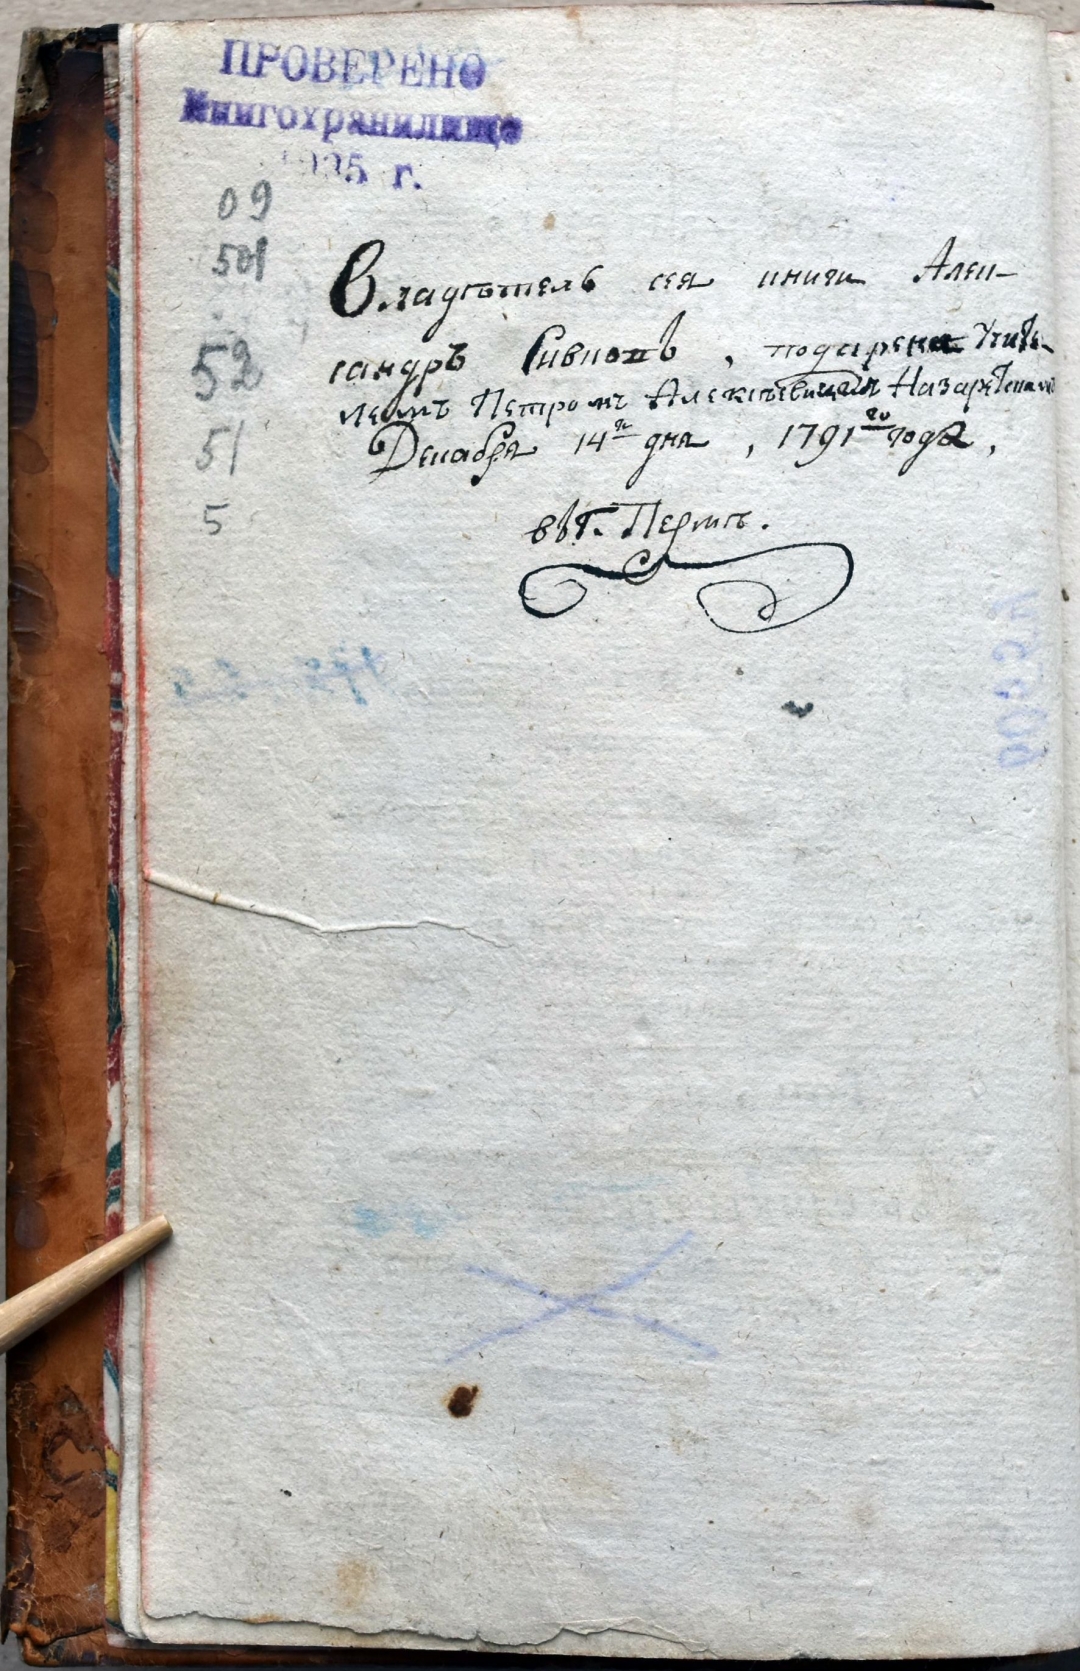 ПРОВЕРЕНО
Книгохранилище
1935 г.
09
501
52
51
5
Владѣтель сея книги Алек-
сандръ , подарена Учите-
лемъ Петромъ Алексѣевичемъ
Декабря 14го дня , 1791го года ,
въ Г. Перми .